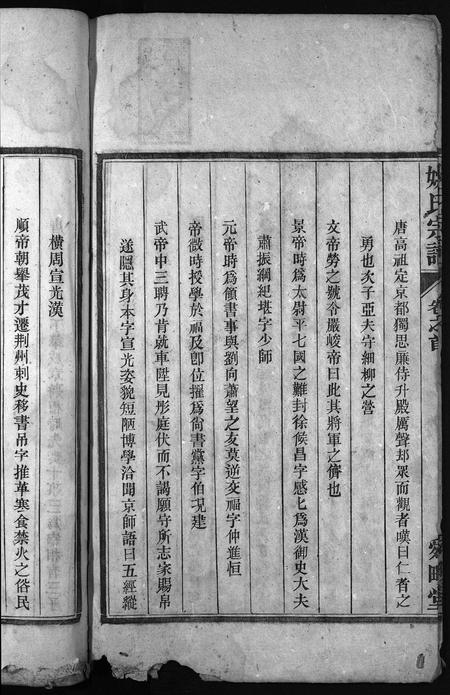 姚氏宗譜
卷之首
愛畊堂
唐高祖定京都獨思廉侍升殿厲聲却眾而觀者嘆曰仁者之
勇也次子亞夫守細柳之營
文帝勞之號令嚴峻帝曰此其將軍之儕也
景帝時爲太尉平七國之難封徐候昌字感七爲漢御史大夫
肅振綱紀堪字少師
元帝時爲領書事與劉向蕭望之友莫逆交福字仲進恒
帝微時授學於福及卽位擢爲尙書黨字伯況建
武帝中三聘乃肯就車陛見彤庭伏而不謁願守所志家賜帛
遂隱其身本字宣光姿貌短陋博學洽聞京師語曰五經縱
橫周宣光漢
順帝朝舉茂才遷荆州刺史移書吊字推革寒食禁火之俗民